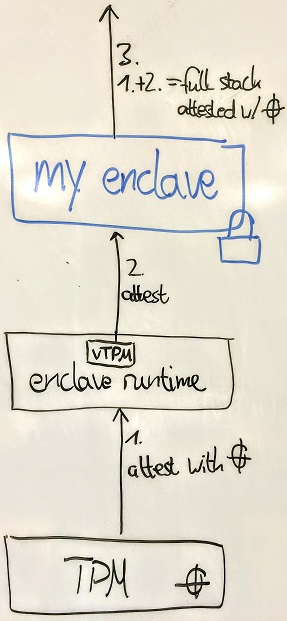 3.
1.+2. = full stack
attested w/ ⌽
my enclave
2.
attest
vTPM
enclave runtime
1.
attest with ⌽
TPM ⌽